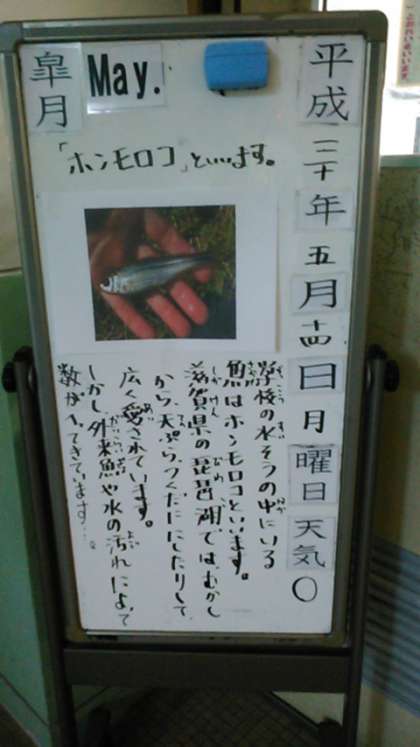 平成三十年五月十四日月曜日天気○
皐月
May.
「ホンモロコ」といいます。
学校の水そうの中にいる
魚はホンモロコといいます。
滋賀県の琵琶湖では、むかし
から、天ぷらつくだににしたりして
広く愛されています。
しかし、外来魚や水の汚れによって
数がへってきています…。